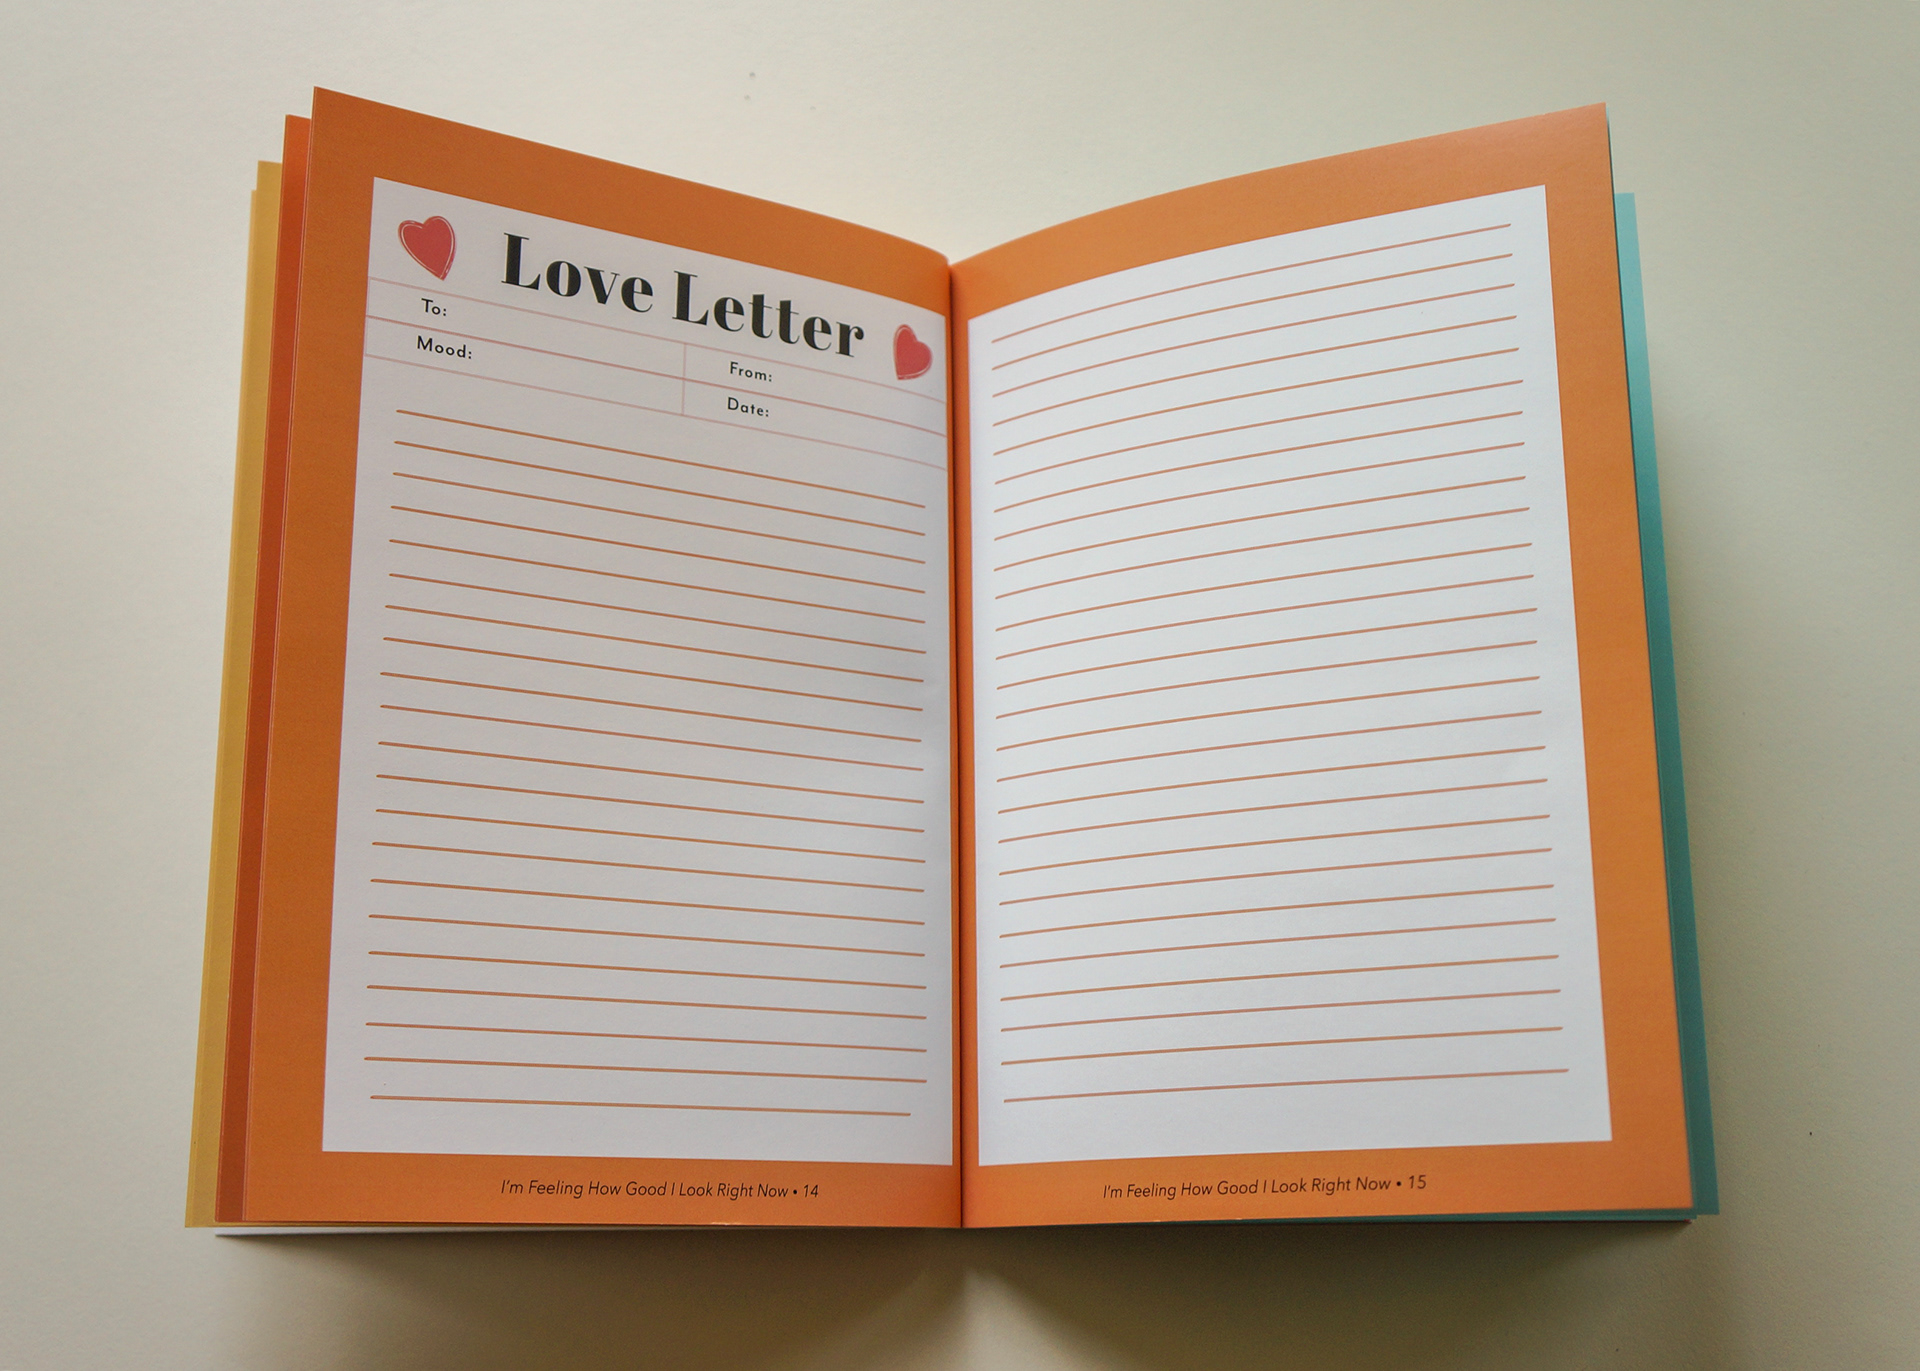 Love Letter
To:
From:
Mood:
Date:
I'm Feeling How Good I Look Right Now • 14
I'm Feeling How Good I Look Right Now • 15